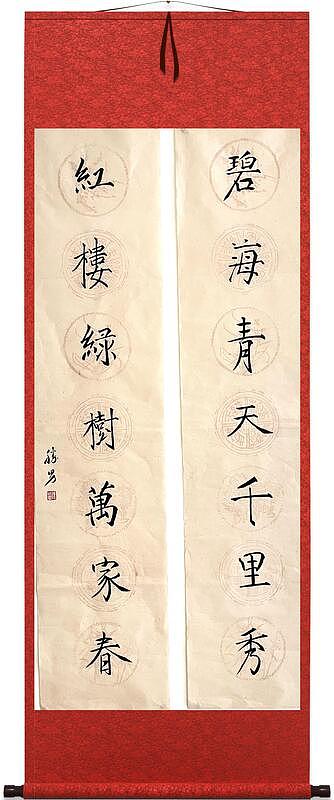 碧海青天千里秀
紅樓綠樹萬家春
勝男